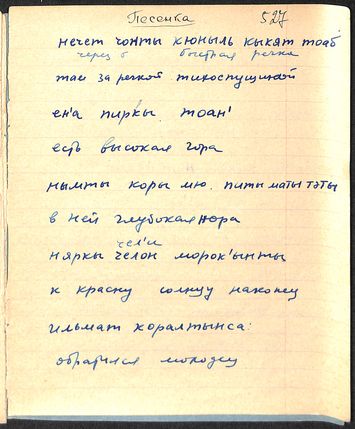 Песенка 527
нечет чонты кюныль кыкят тоаб
через б быстрая речка
там за речкой тихоспущикой
ен'а пиркы тоан'
есть высокая гора
нымты коры мю. питы маты тэты
в ней глубокая нора
чел'и
няркы челон морок'ынты
к красну солнцу наконец
ильмат коралтынса:
обратился молодец